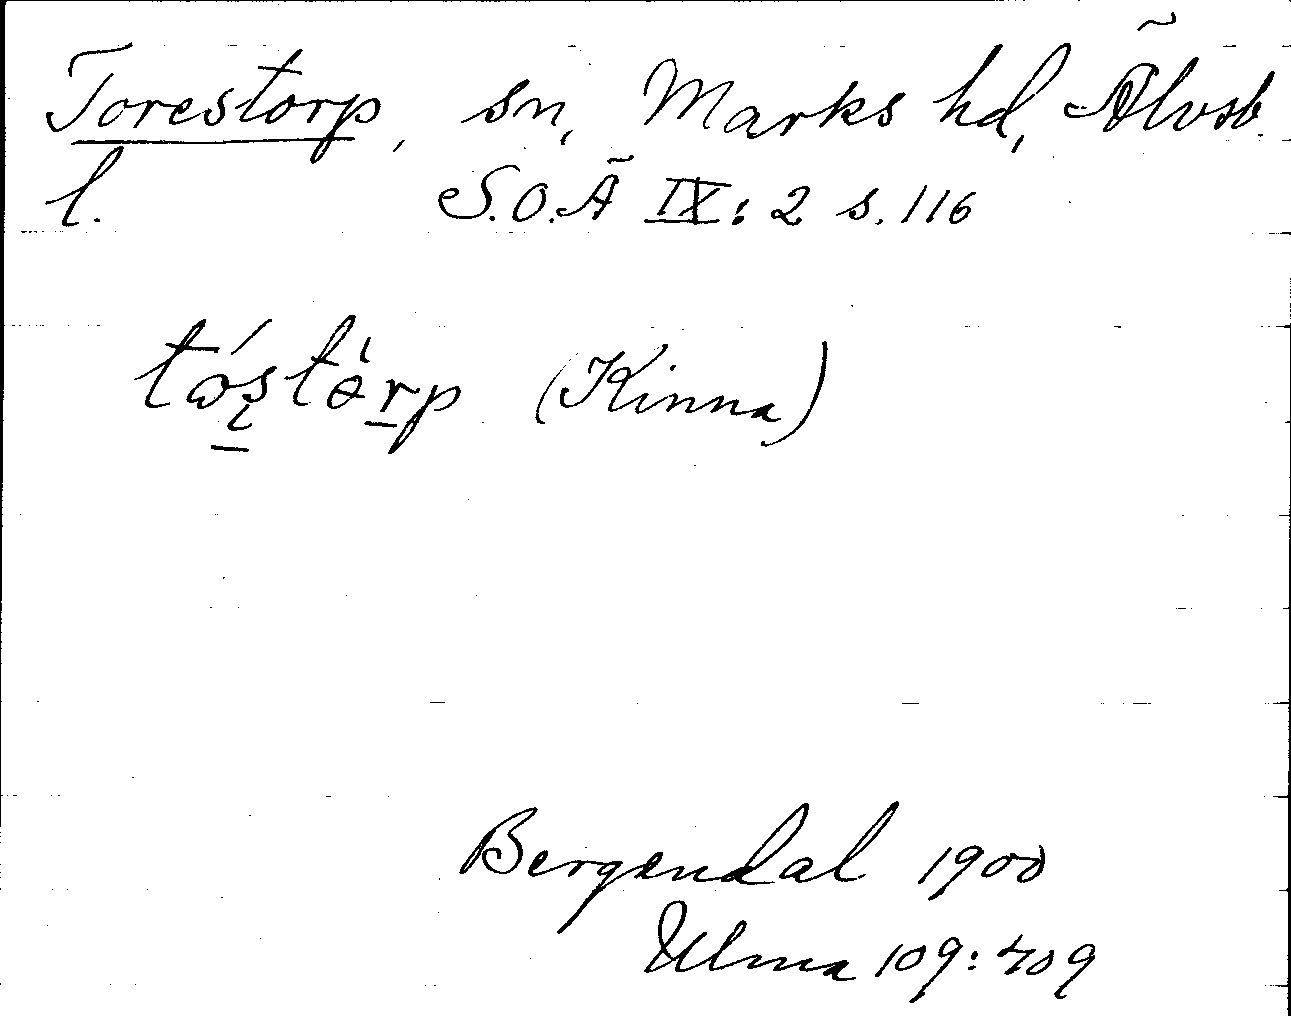 Torestorp, sn, Marks hd, Älvsb.
l. S.O.Ä IX: 2 s. 116
(Kinna)
Bergendal 1900
Ulma 109: 409